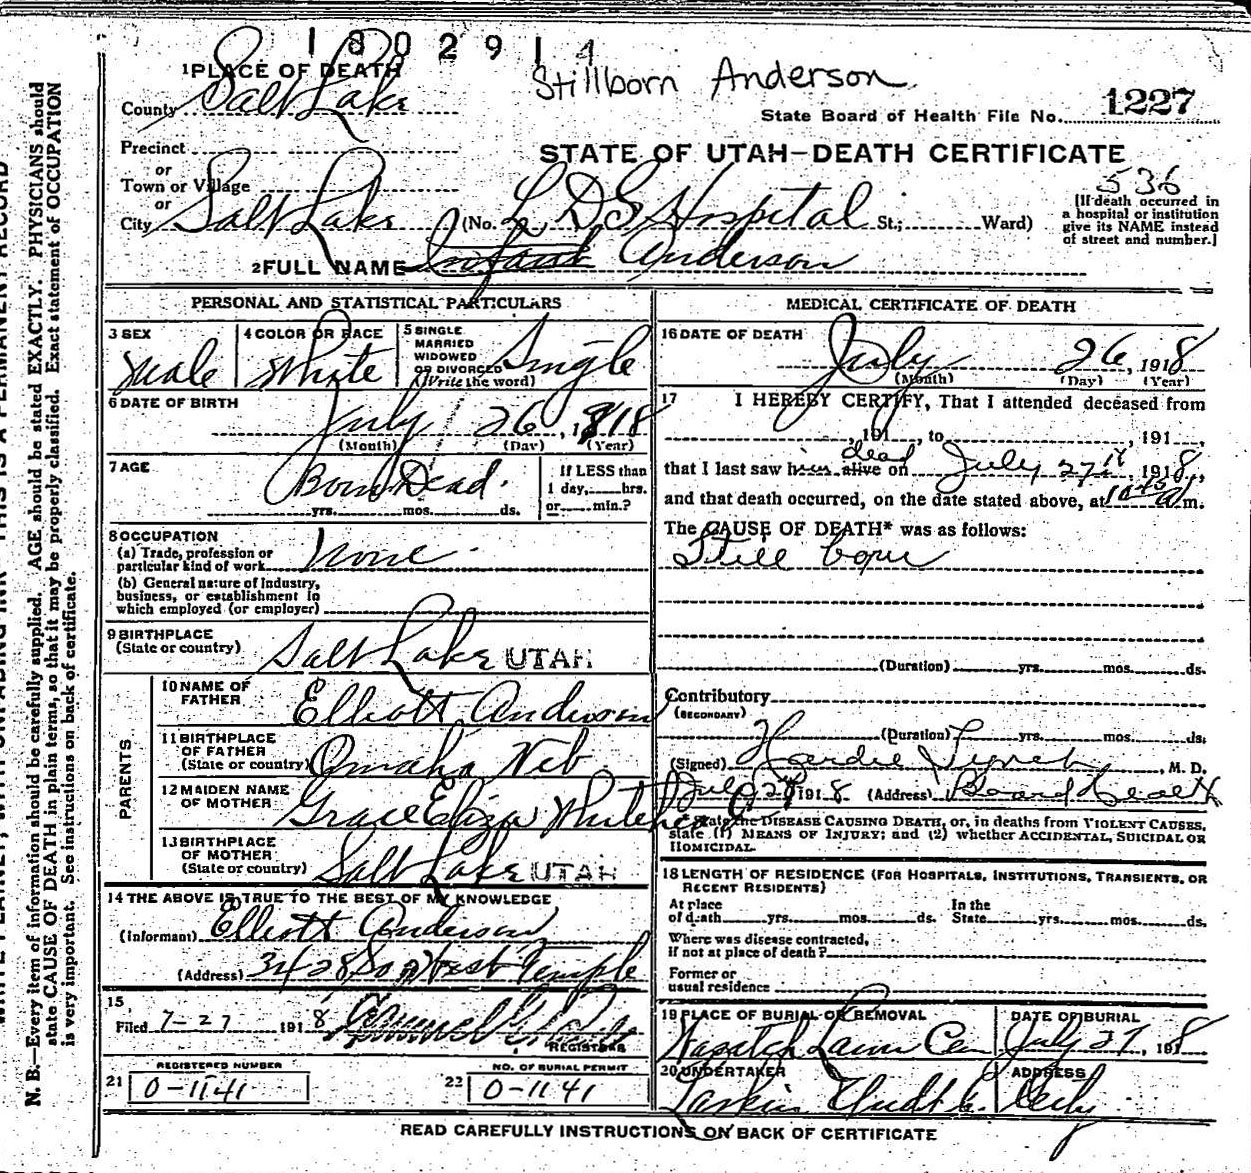 1802914
Stillborn Anderson
1 PLACE OF DEATH
County Salt Lake
State Board of Health File No. 1227
Precinct
or
Town or Village
or
City Salt Lake (No. L D S Hospital St.; Ward)
STATE OF UTAH—DEATH CERTIFICATE
536
[If death occurred in
a hospital or institution
give its NAME instead
of street and number.]
2 FULL NAME Infant Anderson
PERSONAL AND STATISTICAL PARTICULARS
3 SEX
Male
4 COLOR OR RACE
White
5 SINGLE
MARRIED
WIDOWED
OR DIVORCED
(Write the word)
Single
6 DATE OF BIRTH
July 26, 1918
(Month) (Day) (Year)
7 AGE
Born Dead.
yrs. mos. ds.
If LESS than
1 day, hrs.
or min.?
8 OCCUPATION
(a) Trade, profession or
particular kind of work None
(b) General nature of Industry,
business, or establishment in
which employed (or employer)
9 BIRTHPLACE
(State or country) Salt Lake UTAH
PARENTS
10 NAME OF
FATHER Elliott Anderson
11 BIRTHPLACE
OF FATHER
(State or country) Omaha Neb
12 MAIDEN NAME
OF MOTHER Grace Eliza
13 BIRTHPLACE
OF MOTHER
(State or country) Salt Lake UTAH
14 THE ABOVE IS TRUE TO THE BEST OF MY KNOWLEDGE
(Informant) Elliott Anderson
(Address) So West Temple
15
Filed 7-27 1918
REGISTRAR
REGISTERED NUMBER
21 0-1141
NO. OF BURIAL PERMIT
22 0-1141
MEDICAL CERTIFICATE OF DEATH
16 DATE OF DEATH
July 26, 1918
(Month) (Day) (Year)
17 I HEREBY CERTIFY, That I attended deceased from
, 191 , to , 191 ,
dead
that I last saw him alive on July 27th 1918,
and that death occurred, on the date stated above, at m.
The CAUSE OF DEATH* was as follows:
Still born
(Duration) yrs. mos. ds.
Contributory
(SECONDARY)
(Duration) yrs. mos. ds.
(Signed) , M. D.
July 1918 (Address) Board Health
state the DISEASE CAUSING DEATH, or, in deaths from VIOLENT CAUSES,
state (1) MEANS OF INJURY; and (2) whether ACCIDENTAL, SUICIDAL OR
HOMICIDAL.
18 LENGTH OF RESIDENCE (FOR HOSPITALS, INSTITUTIONS, TRANSIENTS, OR
RECENT RESIDENTS)
At place
of death yrs. mos. ds.
In the
State yrs. mos. ds.
Where was disease contracted,
if not at place of death?
Former or
usual residence
19 PLACE OF BURIAL OR REMOVAL
Wasatch Lawn Cem
DATE OF BURIAL
July 27, 1918
20 UNDERTAKER
Larkin
ADDRESS
City
READ CAREFULLY INSTRUCTIONS ON BACK OF CERTIFICATE
N. B.—Every item of information should be carefully supplied. AGE should be stated EXACTLY. PHYSICIANS should
state CAUSE OF DEATH in plain terms, so that it may be properly classified. Exact statement of OCCUPATION
is very important. See instructions on back of certificate.